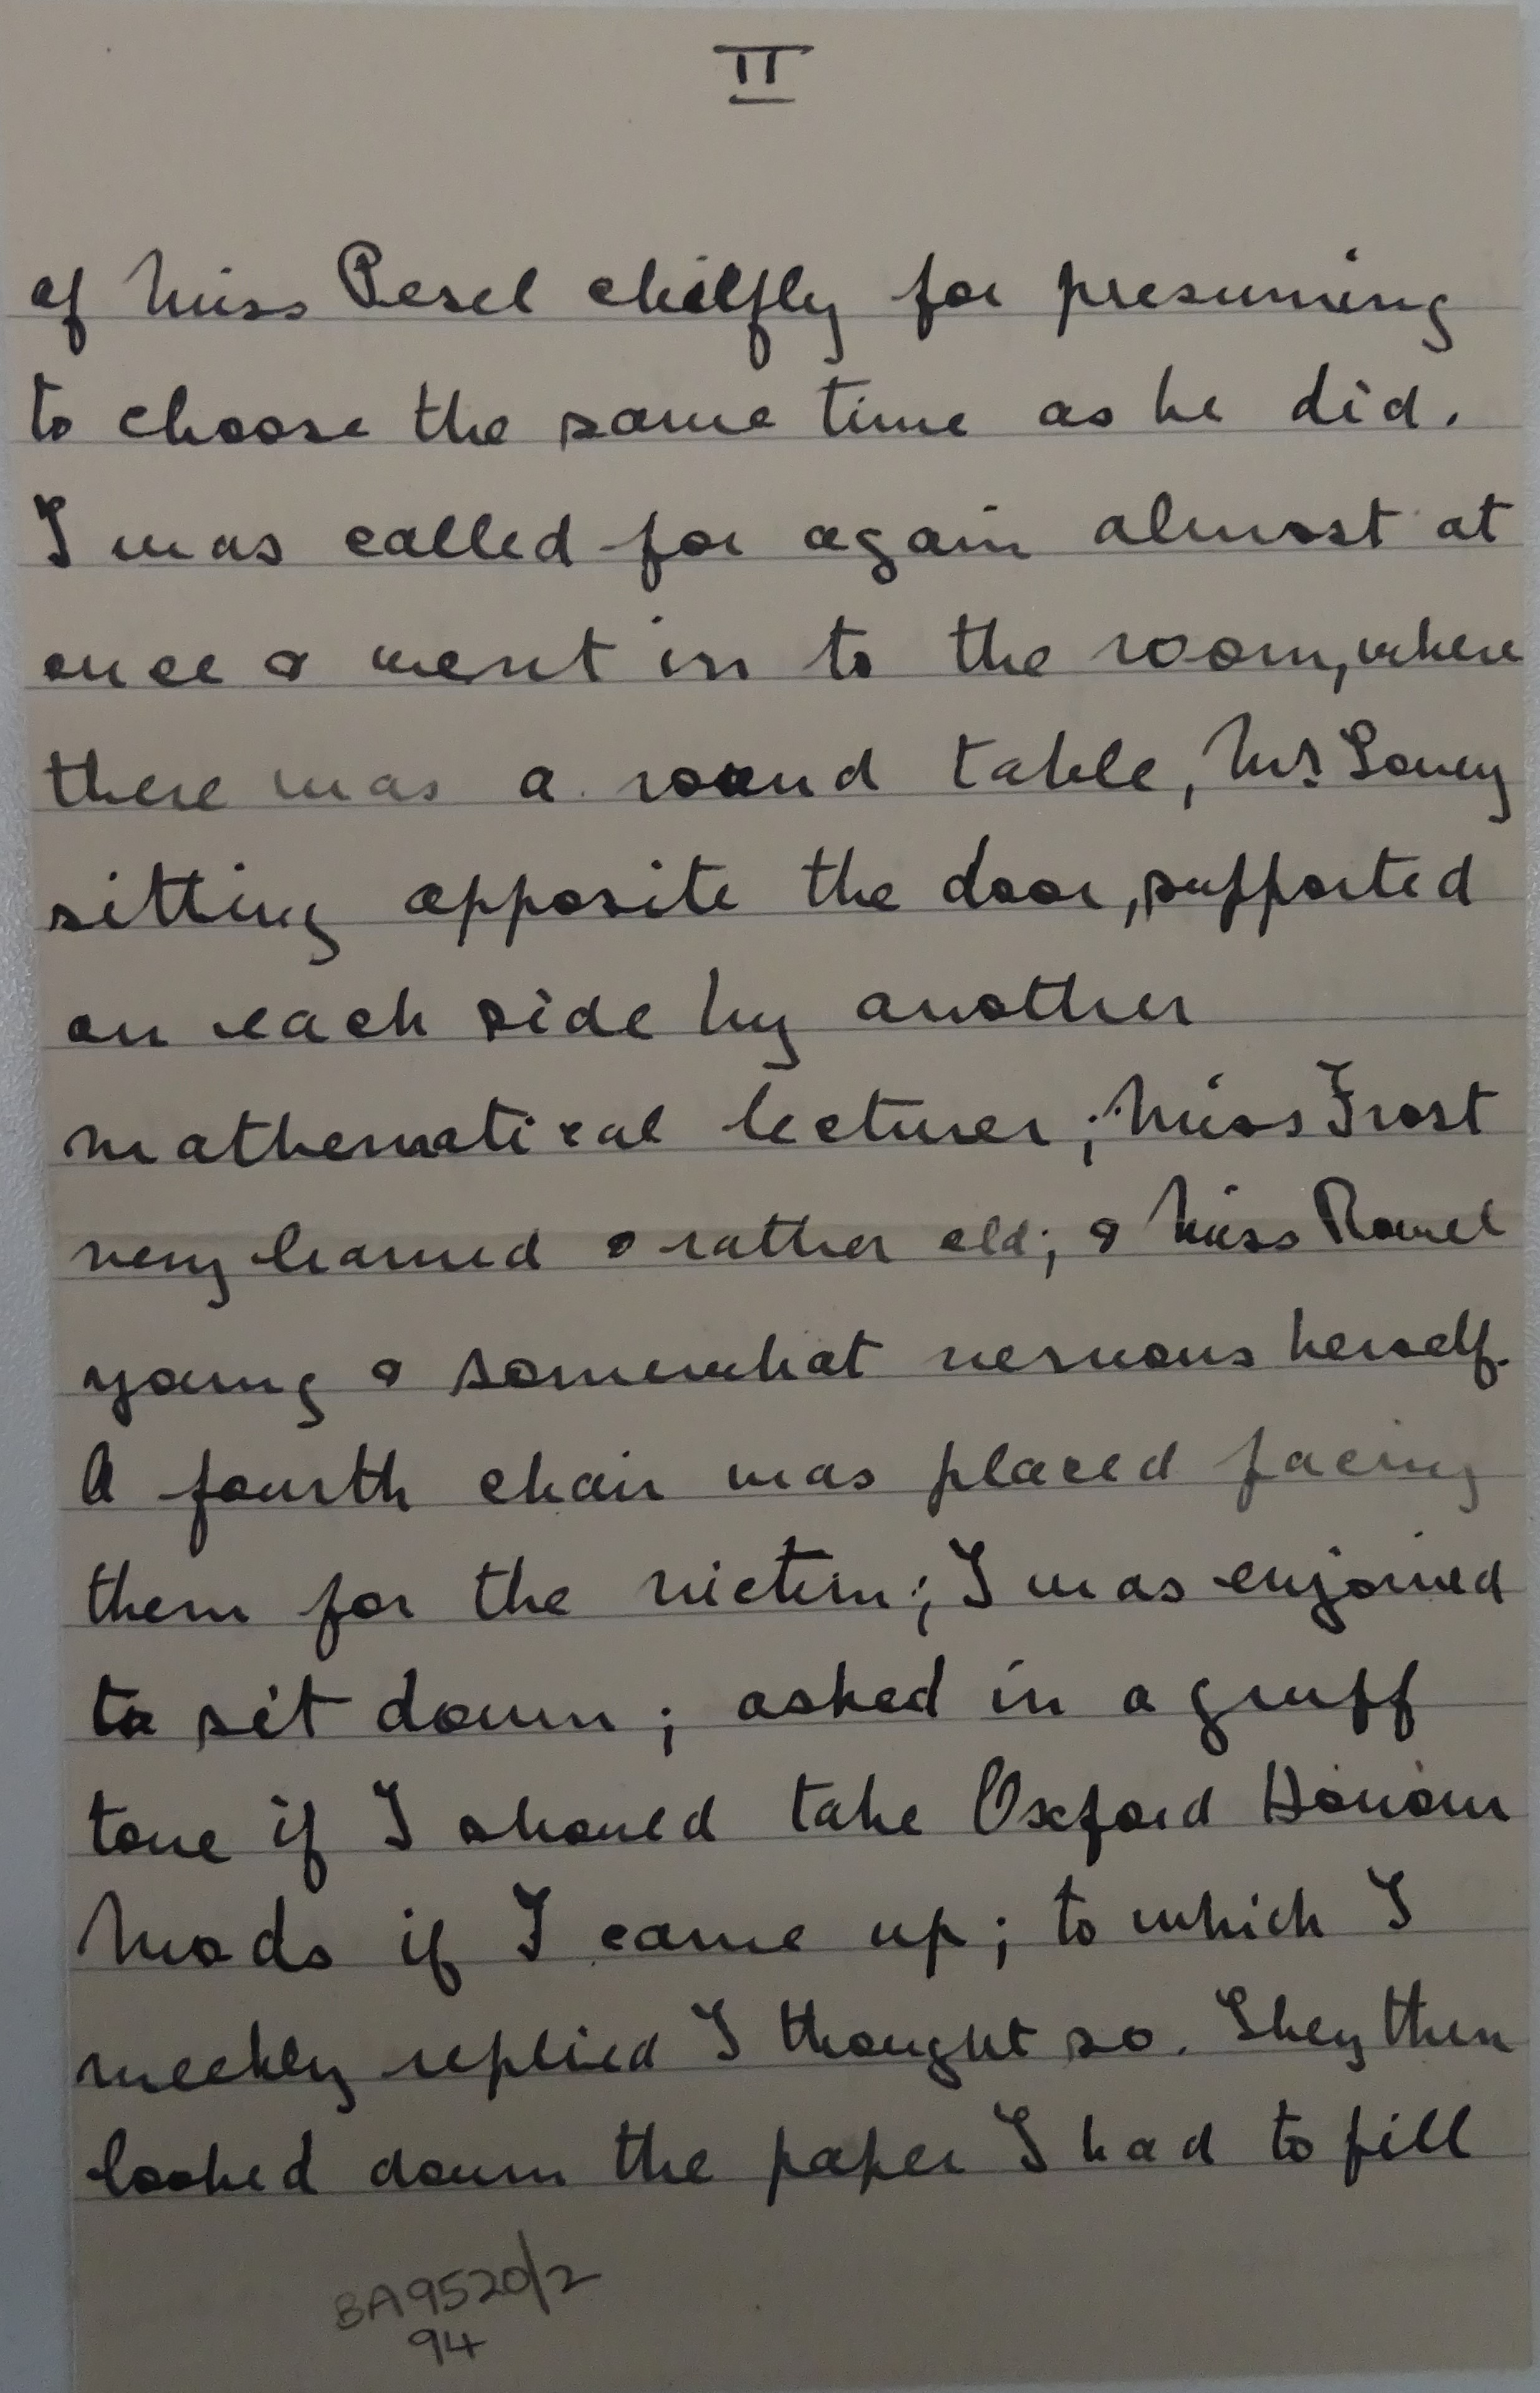 II
of Miss Pesel chielfly for presuming
to choose the same time as he did.
I was called for again almost at
once & went in to the room, where
there was a round table, Mrs
sitting opposite the door, supported
on each side by another
mathematical lecturer; Miss Frost
very learned & rather old; & Miss
young & somewhat nervous herself.
A fourth chair was placed facing
them for the victim; I was enjoined
to sit down; asked in a gruff
tone if I should take Oxford Honour
Mods if I came up; to which I
meekly replied I thought so. They then
looked down the paper I had to fill
BA9520/2
94